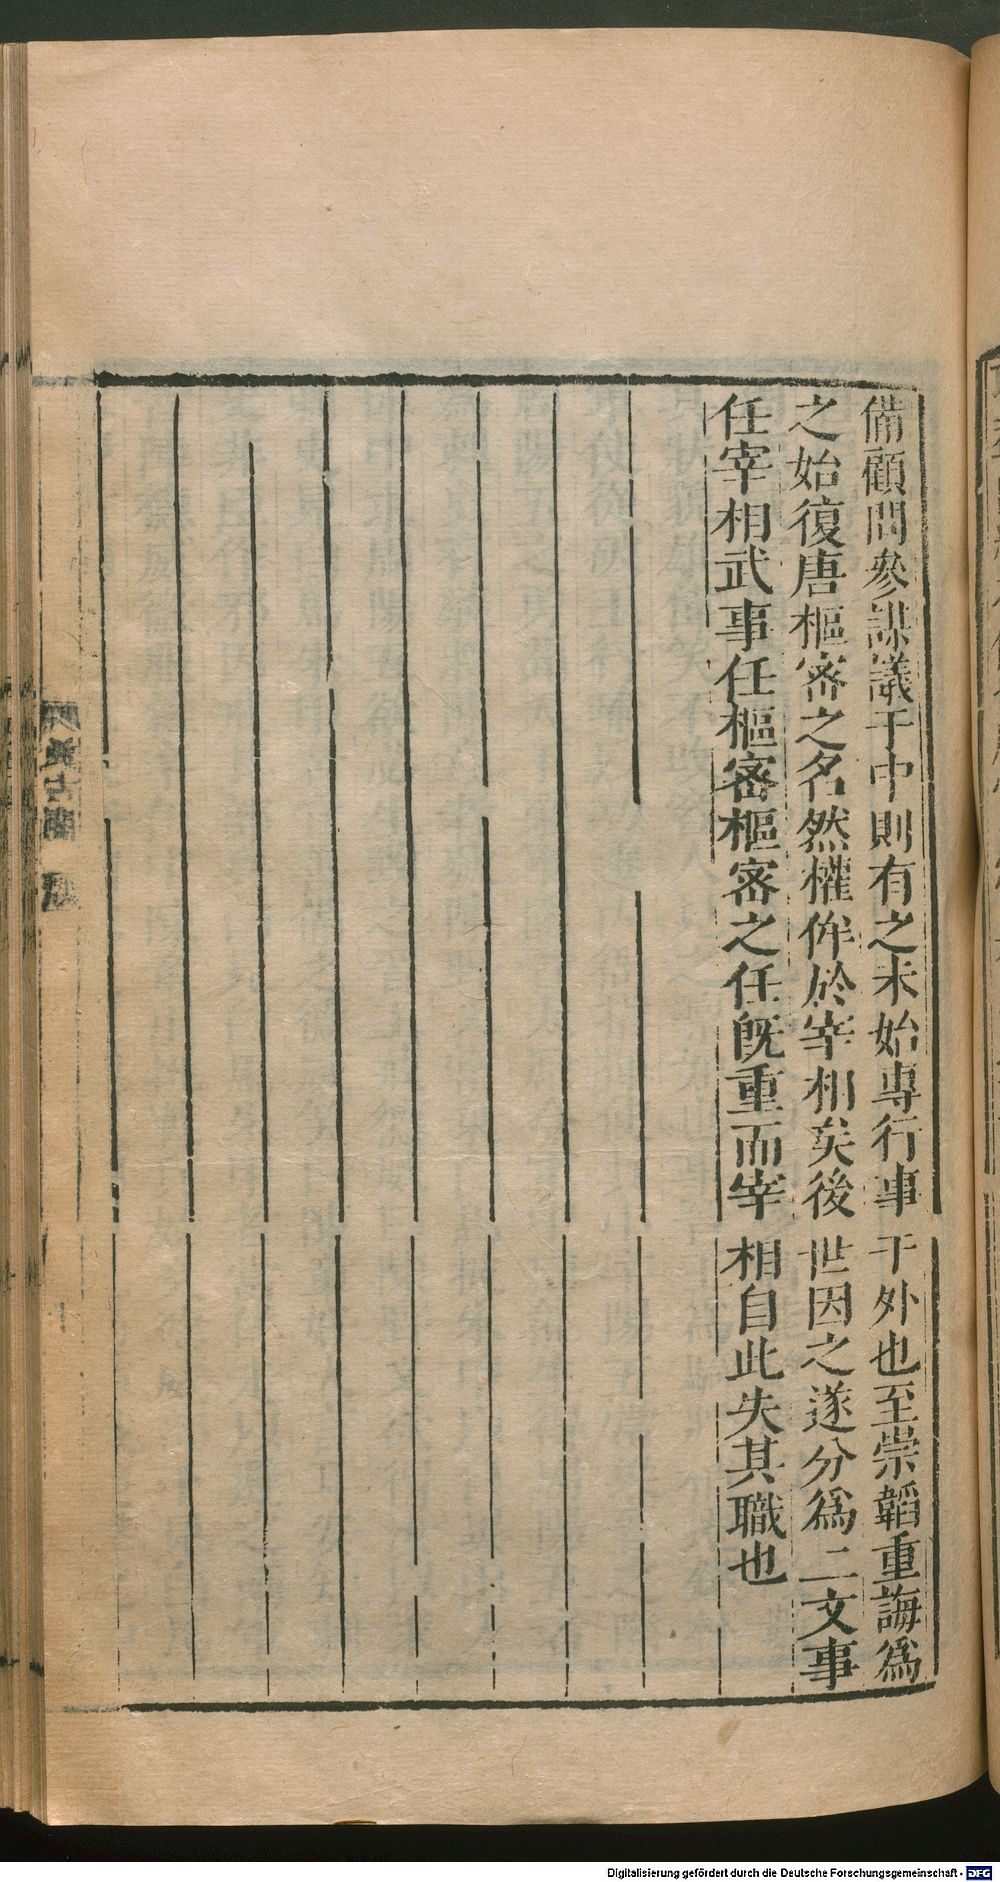 備顧問參謀議于中則有之未始專行事于外也至崇韜重誨爲
之始復唐樞密之名然權侔於宰相矣後世因之遂分爲二文事
任宰相武事任樞密樞密之任既重而宰相自此失其職也
Digitalisierung gefördert durch die Deutsche Forschungsgemeinschaft - DFG